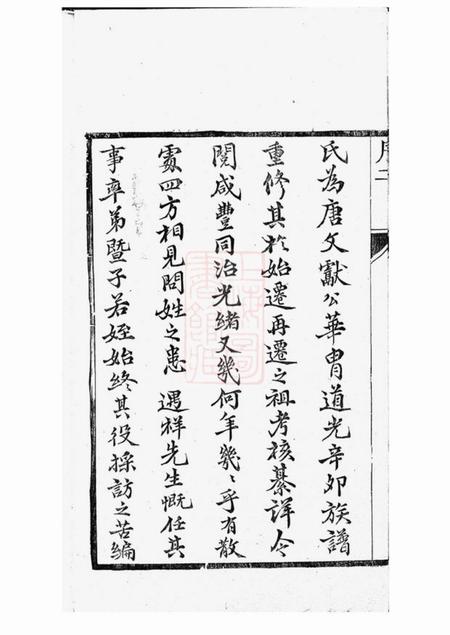 序二
氏為唐文獻公華胄道光辛卯族譜
重修其於始遷再遷之祖考核綦詳今
閱咸豐同治光緒又幾何年幾〻乎有散
處四方相見問姓之患 遇祥先生慨任其
事率弟暨子若姪始終其役採訪之苦編